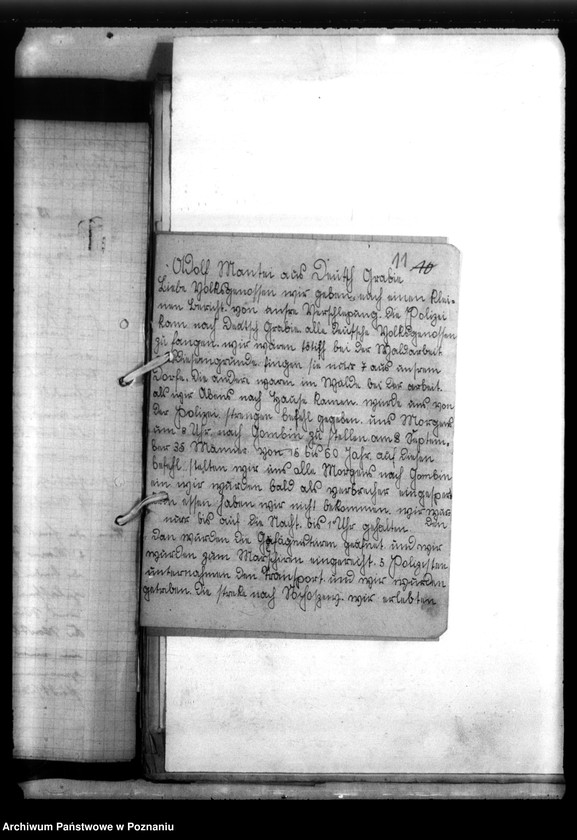 11 10
Adolf Mantei aus Deutsch Grabie
Liebe Volksgenossen wir geben euch einen klei-
nen Bericht von unsre Verschlepung. Die Polizei
kam nach Deutsch Grabie alle Deutsche Volksgenossen
zu fangen. wir waren bei der Waldarbeit
fingen sie nur 7 aus unsrem
Dorfe. Die andere warn im Walde bei der arbeit.
als wir Abens nach Hause kamen. wurde uns von
der Polizei strengen befehl gegeben. uns Morgens
am Uhr nach Gombin zu stellen am 8. Septem.
ber 35 Männer von 16 bis 60 Jahr. auf diesen
befehl stelten wir uns alle Morgens nach Gombin
ein wir wurden bald als verbrecher eingespert
essen haben wir nicht bekommen. wir war
nur bis auf die Nacht. bis 1 Uhr gehalten
Dan wurden die geöfnet und wir
wurden zum Marschirn eingereicht. 3. Polizisten
unternahmen den Transport und wir wurden
getriben. Die streke nach wir erlebten
Archiwum Państwowe w Poznaniu